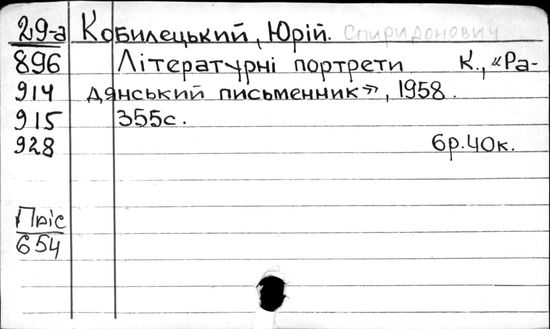 29-а Кобилецький, Юрій. Спиридонович
896 Літературні портрети К., «Ра-
914 дянський письменник», 1958.
915 355с.
928 6р.40к.
Пріс
654